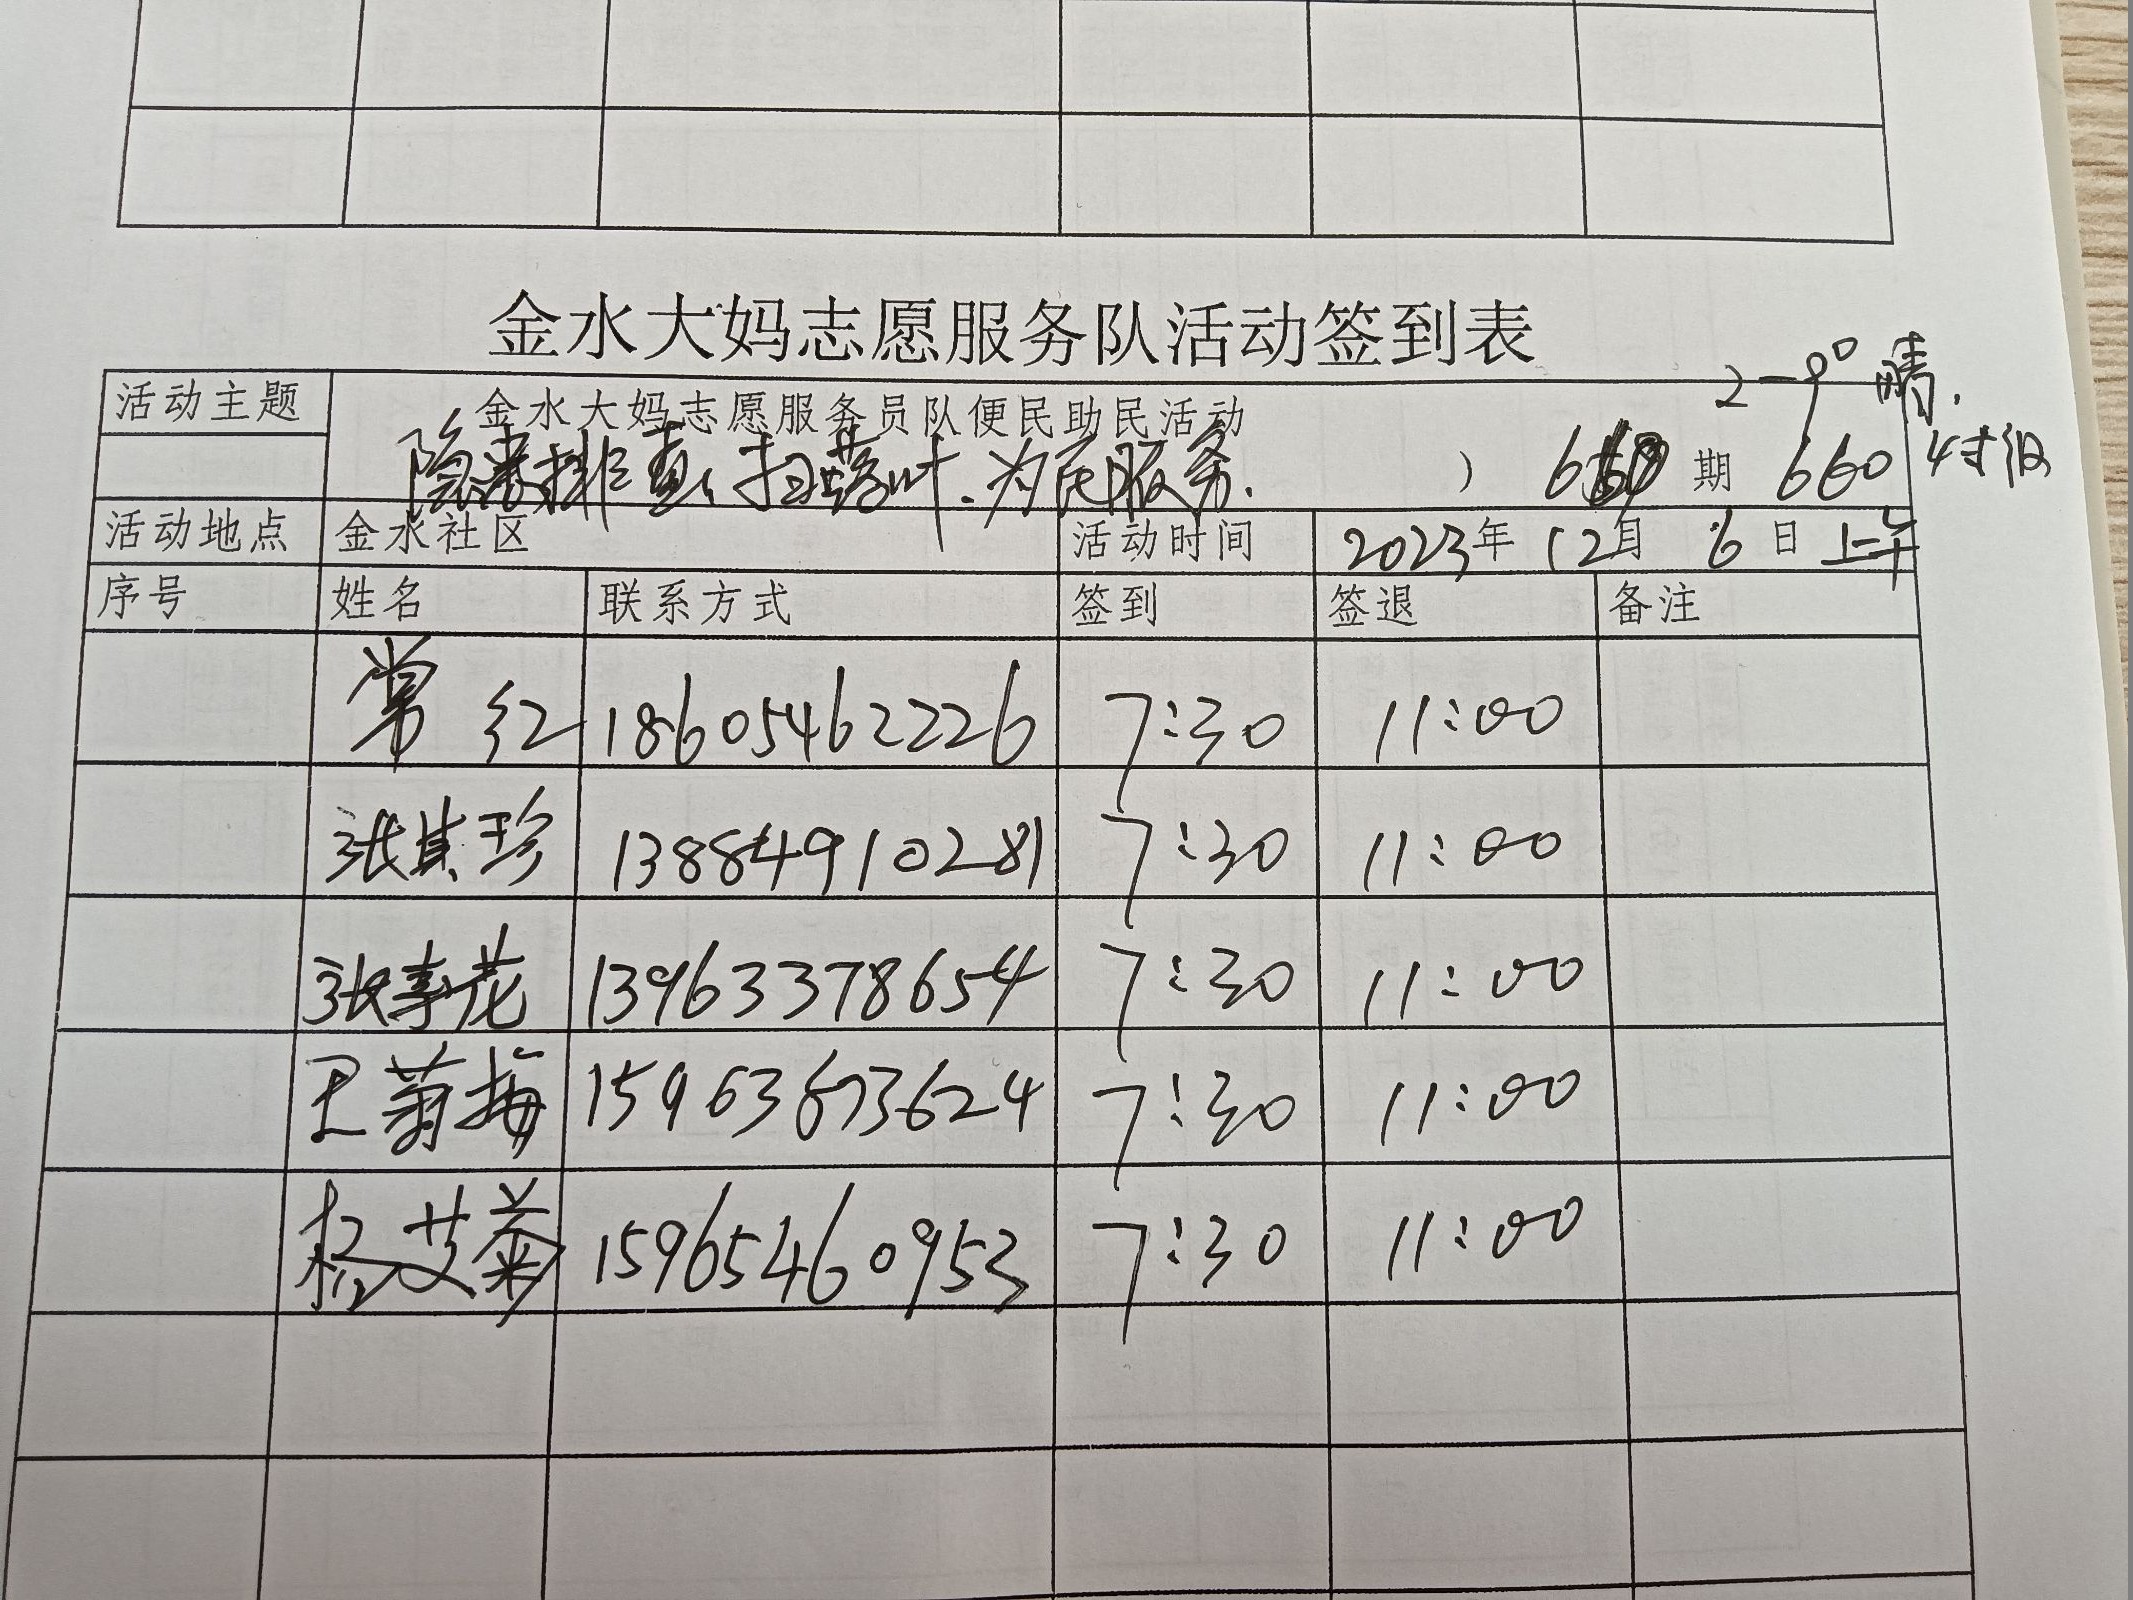 金水大妈志愿服务队活动签到表
2-9° 晴.
活动主题 金水大妈志愿服务员队便民助民活动
隐患排查、扫落叶、为民服务. ） 期 660
活动地点 金水社区 活动时间 2023年 12月 6日 上午
序号 姓名 联系方式 签到 签退 备注
常红 18605462226 7:30 11:00
张其珍 13884910281 7:30 11:00
张春花 13963378654 7:30 11:00
王菊梅 15963873624 7:30 11:00
杨艾菊 15965460953 7:30 11:00